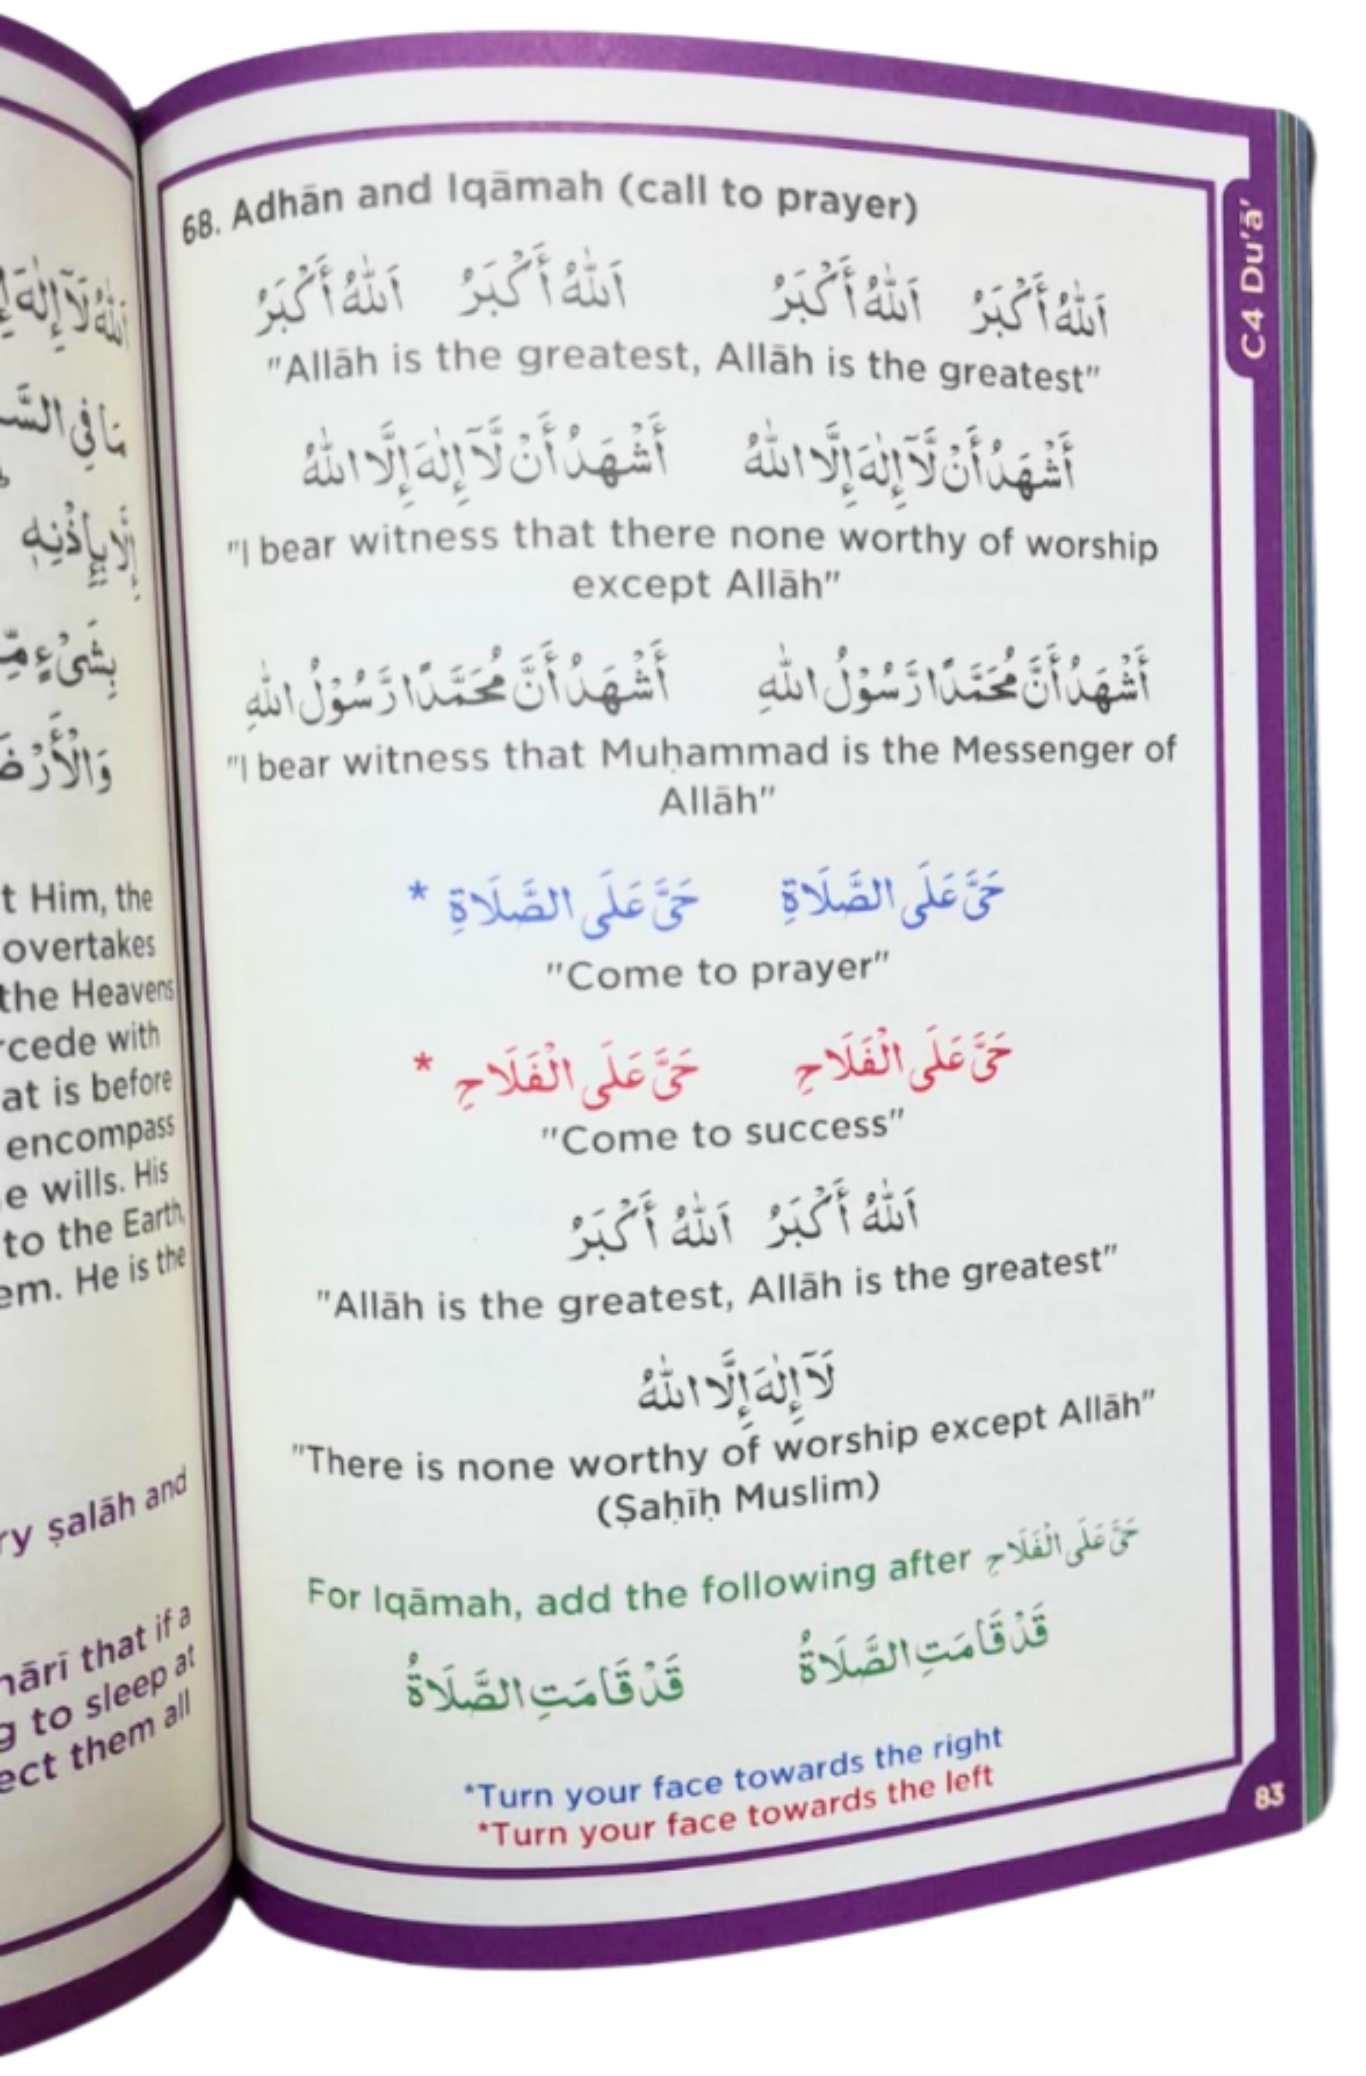 اَللّٰهُ لَآ إِلٰهَ
مَا فِي
إِلَّا بِإِذْنِهِ
بِشَىْءٍ
وَالْأَرْضَ
t Him, the
overtakes
the Heavens
cede with
at is before
encompass
e wills. His
to the Earth,
em. He is the
ry ṣalāh and
that if a
to sleep at
ect them all
68. Adhān and Iqāmah (call to prayer)
اَللّٰهُ أَكْبَرُ اَللّٰهُ أَكْبَرُ اَللّٰهُ أَكْبَرُ اَللّٰهُ أَكْبَرُ
"Allāh is the greatest, Allāh is the greatest"
أَشْهَدُ أَنْ لَّآ إِلٰهَ إِلَّا اللّٰهُ أَشْهَدُ أَنْ لَّآ إِلٰهَ إِلَّا اللّٰهُ
"I bear witness that there none worthy of worship
except Allāh"
أَشْهَدُ أَنَّ مُحَمَّدًا رَّسُوْلُ اللّٰهِ أَشْهَدُ أَنَّ مُحَمَّدًا رَّسُوْلُ اللّٰهِ
"I bear witness that Muḥammad is the Messenger of
Allāh"
حَىَّ عَلَى الصَّلَاةِ حَىَّ عَلَى الصَّلَاةِ *
"Come to prayer"
حَىَّ عَلَى الْفَلَاحِ حَىَّ عَلَى الْفَلَاحِ *
"Come to success"
اَللّٰهُ أَكْبَرُ اَللّٰهُ أَكْبَرُ
"Allāh is the greatest, Allāh is the greatest"
لَآ إِلٰهَ إِلَّا اللّٰهُ
"There is none worthy of worship except Allāh"
(Ṣaḥīḥ Muslim)
For Iqāmah, add the following after حَىَّ عَلَى الْفَلَاحِ
قَدْ قَامَتِ الصَّلَاةُ قَدْ قَامَتِ الصَّلَاةُ
*Turn your face towards the right
*Turn your face towards the left
C4 Du'ā'
83